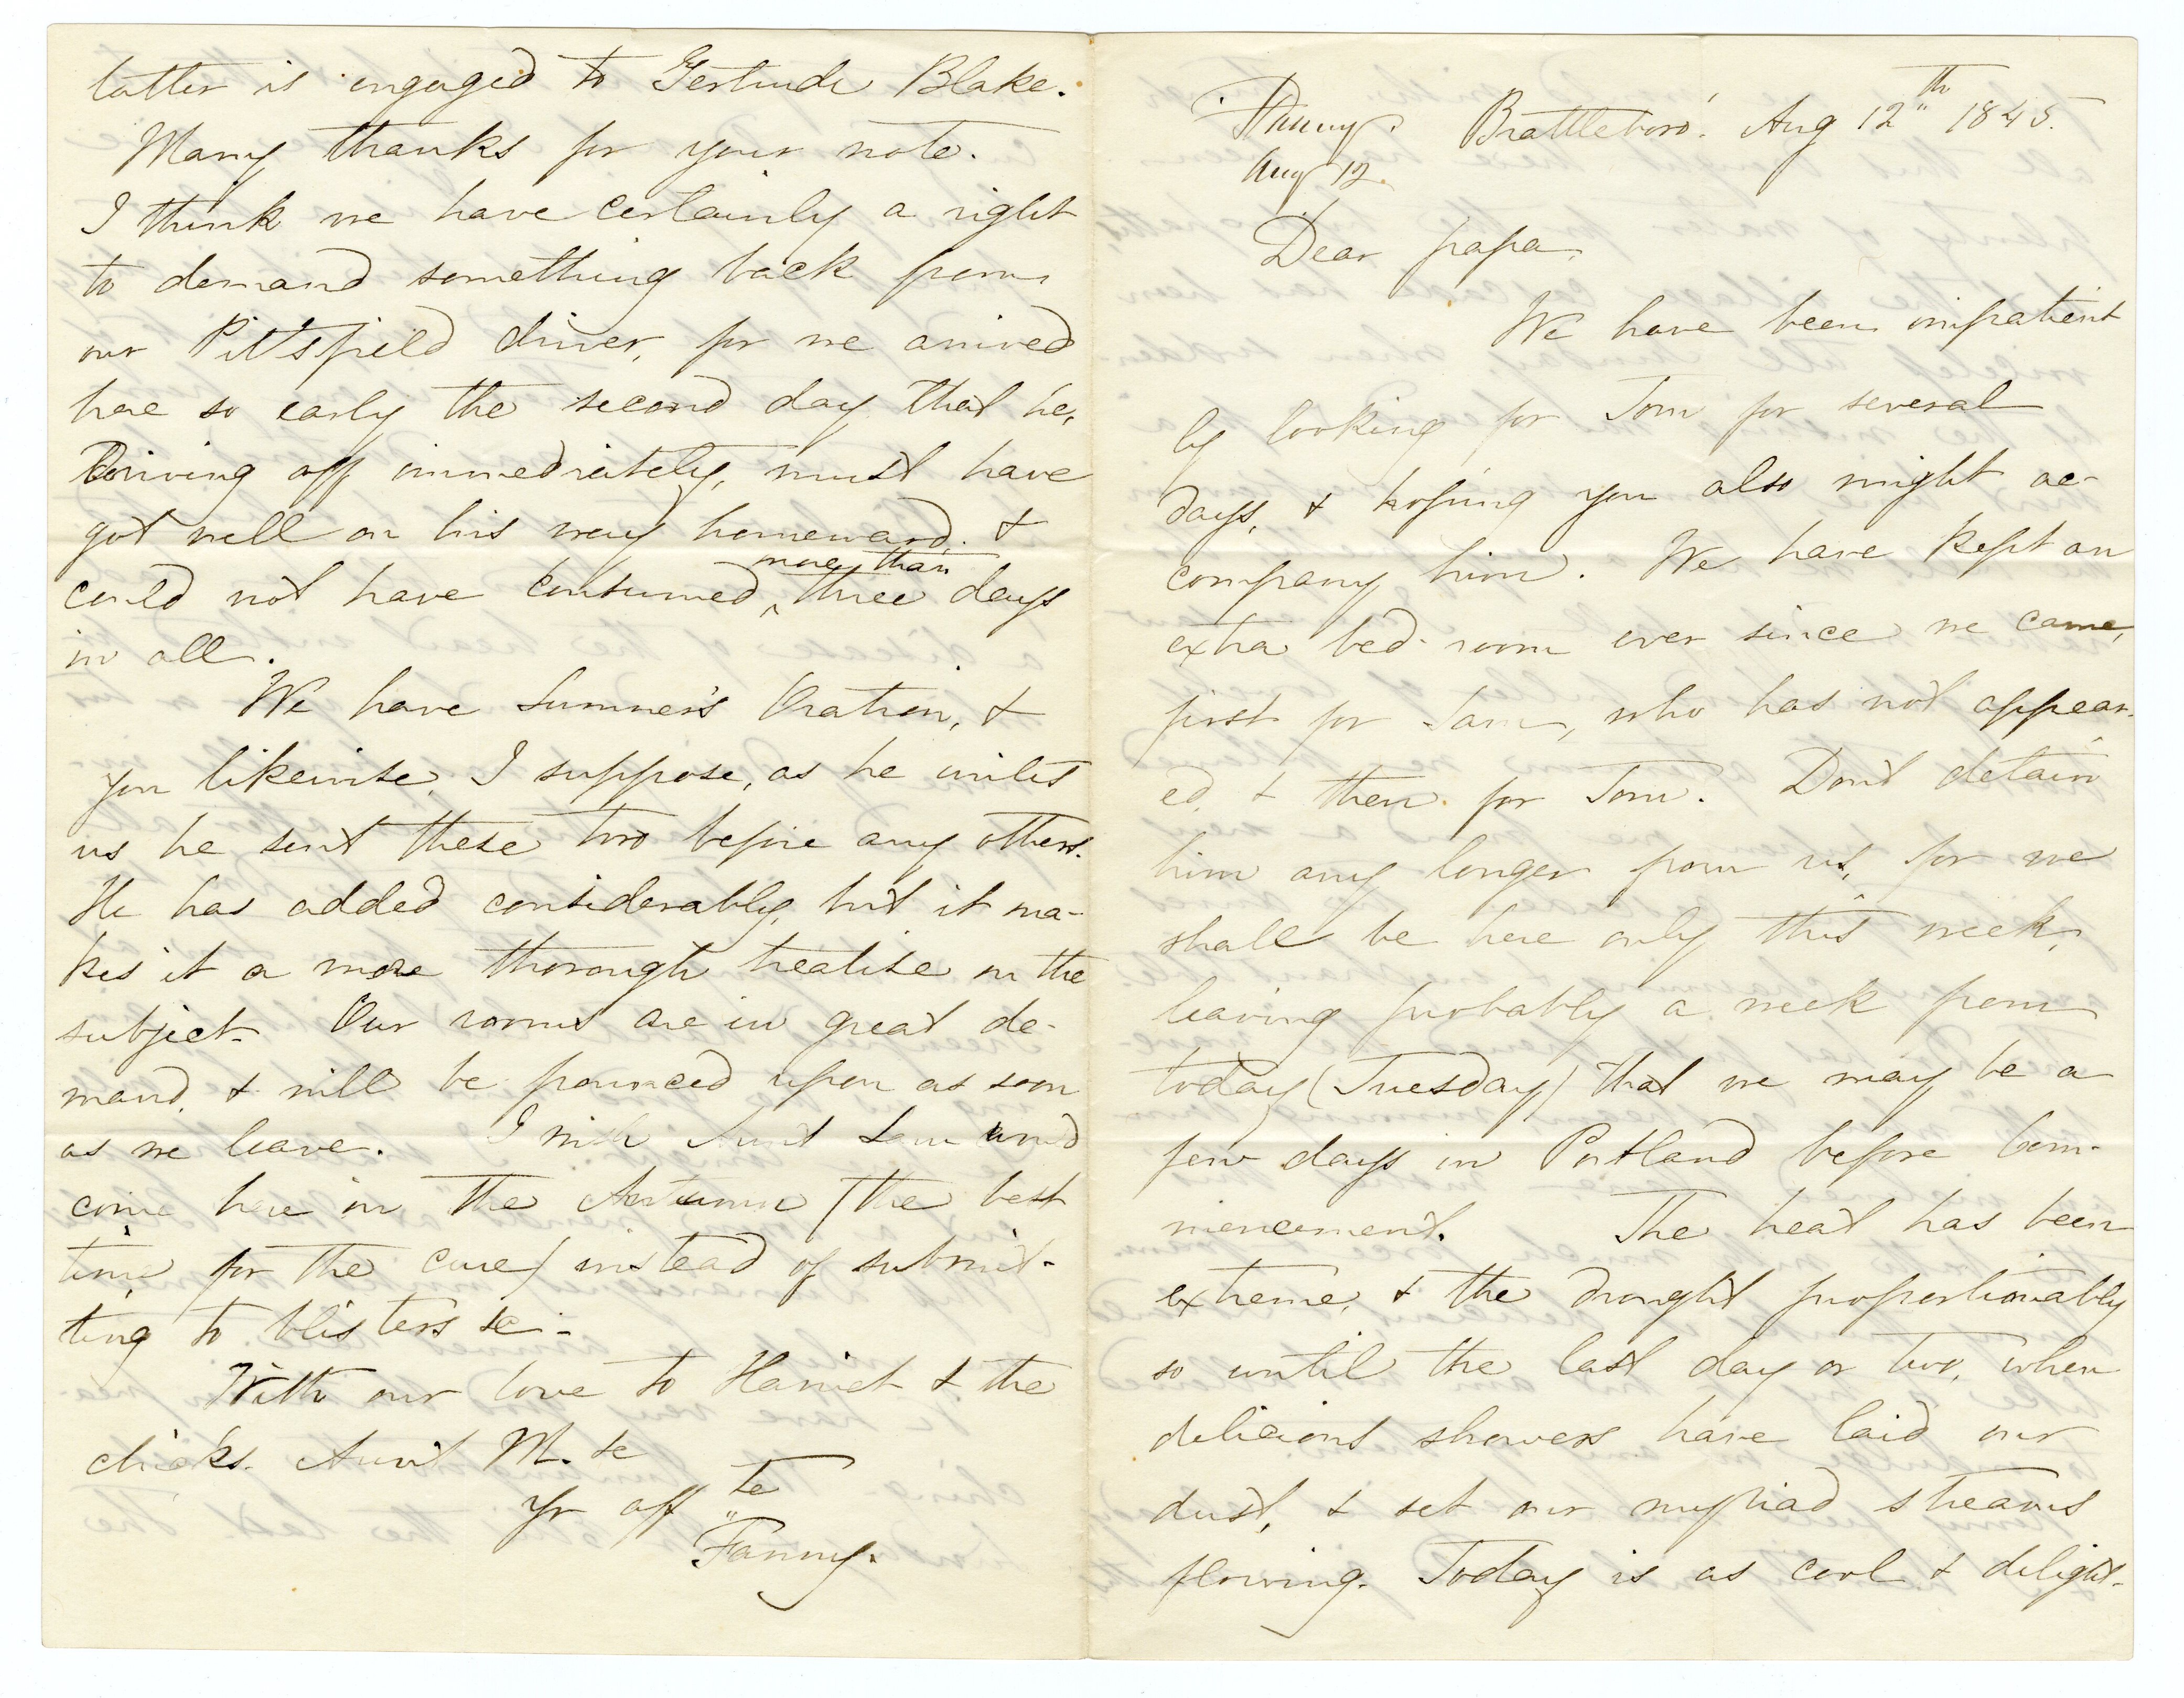 Fanny.
Aug 12.
Brattleboro'. Aug 12th 1845.
Dear papa,
We have been impatient
ly looking for Tom for several
days, & hoping you also might ac-
company him. We have kept an
extra bed-room ever since we came,
first for Sam, who has not appear-
ed, & then for Tom. Don't detain
him any longer from us, for we
shall be here only this week,
leaving probably a week from
today (Tuesday) that we may be a
few days in Portland before Com-
mencement. The heat has been
extreme, & the drought proportionably
so until the last day or two, when
delicious showers have laid our
dust, & set our myriad streams
flowing. Today is as cool & delight-
latter is engaged to Gertrude Blake.
Many thanks for your note.
I think we have certainly a right
to demand something back from
our Pittsfield driver, for we arrived
here so early the second day that he,
driving off immediately, must have
got well on his way homeward, &
could not have consumed more than three days
in all.
We have Sumner's Oration, &
you likewise, I suppose, as he writes
us he sent these two before any others.
He has added considerably, but it ma-
kes it a more thorough treatise on the
subject. Our rooms are in great de-
mand, & will be pounced upon as soon
as we leave. I wish Aunt Sam would
come here in the Autumn (the best
time for the cure) instead of submit-
ting to blisters &c-
With our love to Harriet & the
chicks. Aunt M. &c
Yr affte
Fanny.